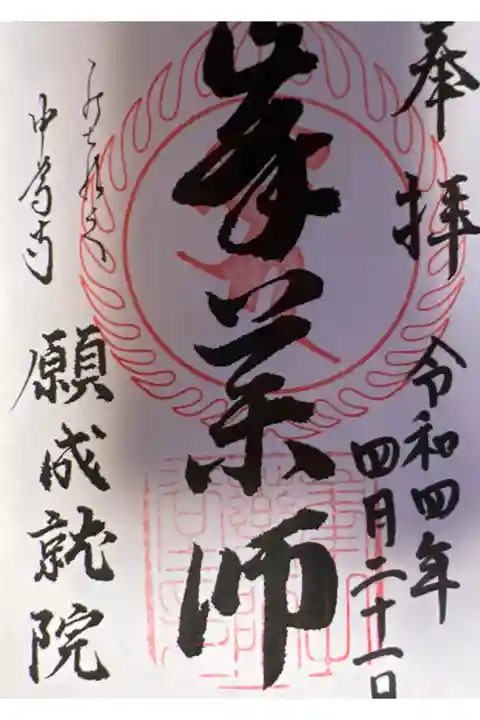 奉拝
令和四年
四月二十一日
峯薬師
中尊寺
願成就院